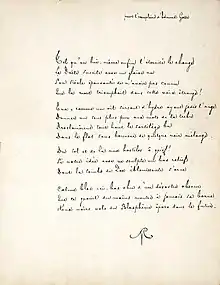 pour l'exemplaire d'Edmund Gosse
Tel qu'en Lui-même enfin l'éternité le change,
Le Poète suscite avec un glaive nu
Son siècle épouvanté de n'avoir pas connu
Que la mort triomphait dans cette voix étrange!
Eux, comme un vil sursaut d'hydre oyant jadis l'ange
Donner un sens plus pur aux mots de la tribu
Proclamèrent très haut le sortilège bu
Dans le flot sans honneur de quelque noir mélange.
Du sol et de la nue hostiles, ô grief!
Si notre idée avec ne sculpte un bas-relief
Dont la tombe de Poe éblouissante s'orne
Calme bloc ici-bas chu d'un désastre obscur
Que ce granit du moins montre à jamais sa borne
Aux noirs vols du Blasphème épars dans le futur.